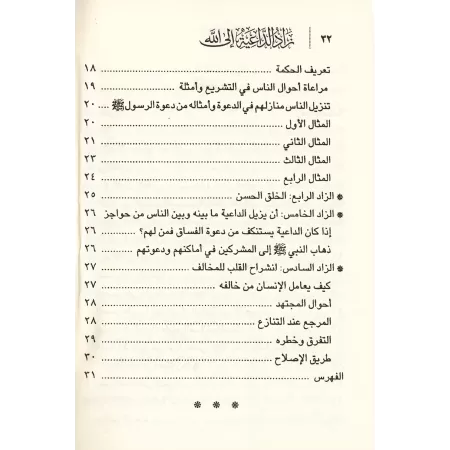 ٣٢ زاد الداعية إلى الله
تعريف الحكمة ........ ١٨
مراعاة أحوال الناس في التشريع وأمثلة ........ ١٩
تنزيل الناس منازلهم في الدعوة وأمثاله من دعوة الرسول ﷺ .... ٢٠
المثال الأول ........ ٢٠
المثال الثاني ........ ٢١
المثال الثالث ........ ٢٣
المثال الرابع ........ ٢٤
* الزاد الرابع: الخلق الحسن ........ ٢٥
* الزاد الخامس: أن يزيل الداعية ما بينه وبين الناس من حواجز ٢٦
إذا كان الداعية يستنكف من دعوة الفساق فمن لهم؟ ........ ٢٦
ذهاب النبي ﷺ إلى المشركين في أماكنهم ودعوتهم ........ ٢٦
* الزاد السادس: انشراح القلب للمخالف ........ ٢٧
كيف يعامل الإنسان من خالفه ........ ٢٧
أحوال المجتهد ........ ٢٨
المرجع عند التنازع ........ ٢٨
التفرق وخطره ........ ٢٩
طريق الإصلاح ........ ٣٠
الفهرس ........ ٣١
* * *